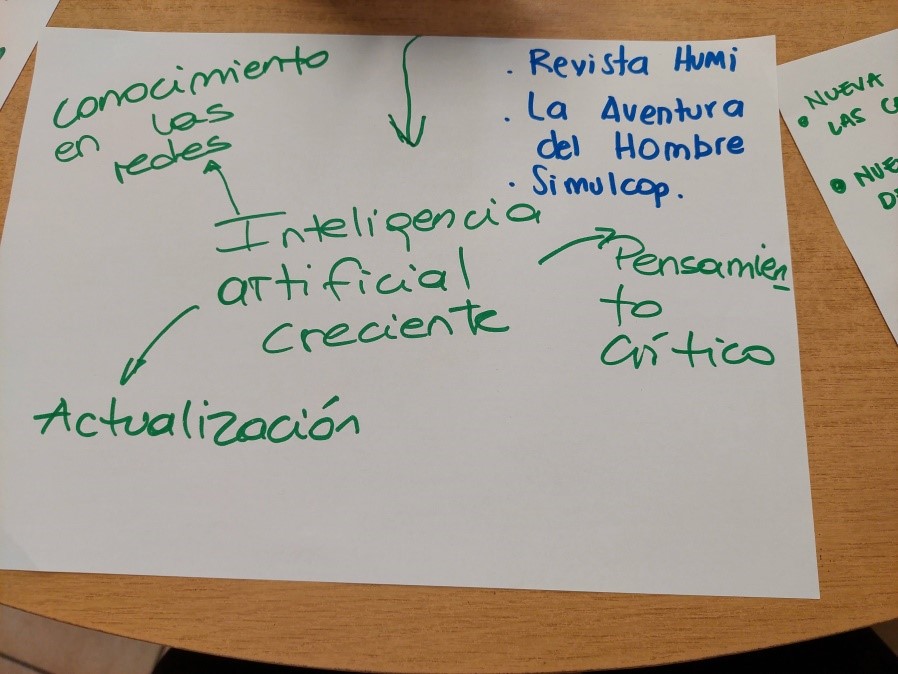 conocimiento
en las
redes
. Revista Humi
. La Aventura
del Hombre
. Simulcop.
Inteligencia
artificial
creciente
Pensamien
to
crítico
Actualización
• NUEVA
LAS
• NUE